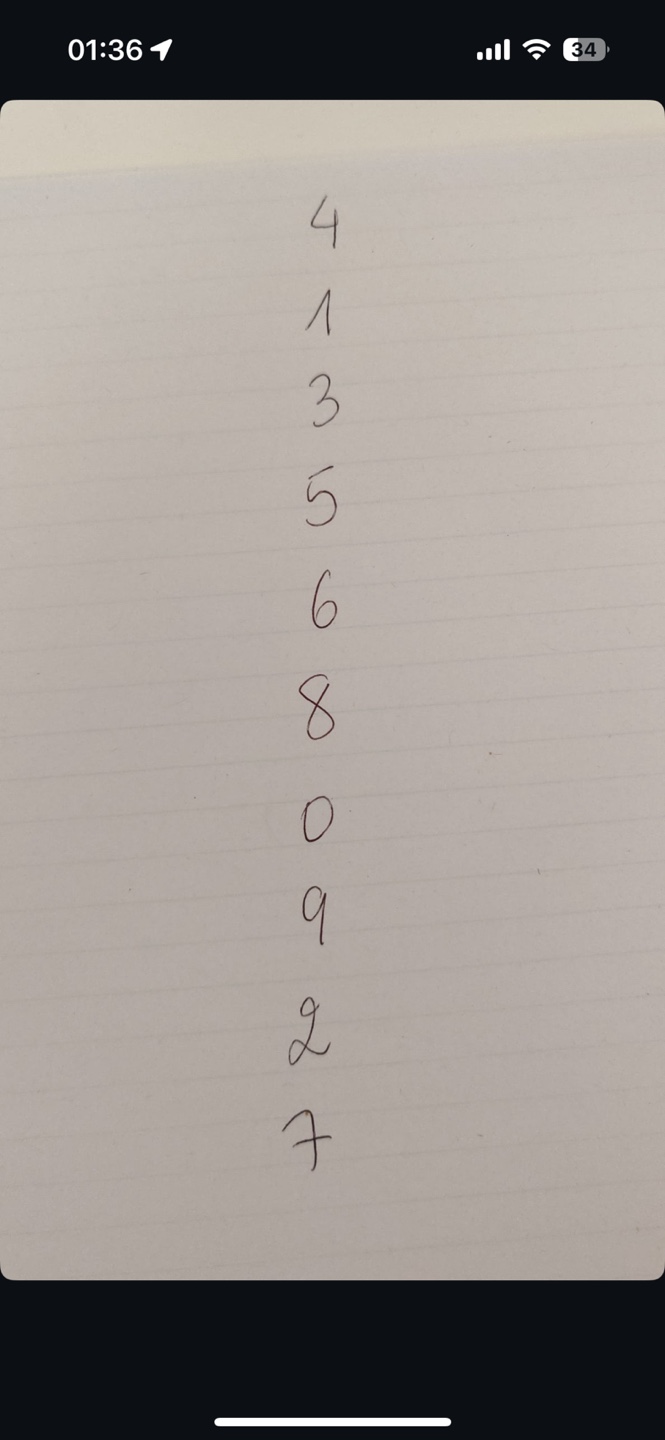 01:36
34
4
1
3
5
6
8
0
9
2
7